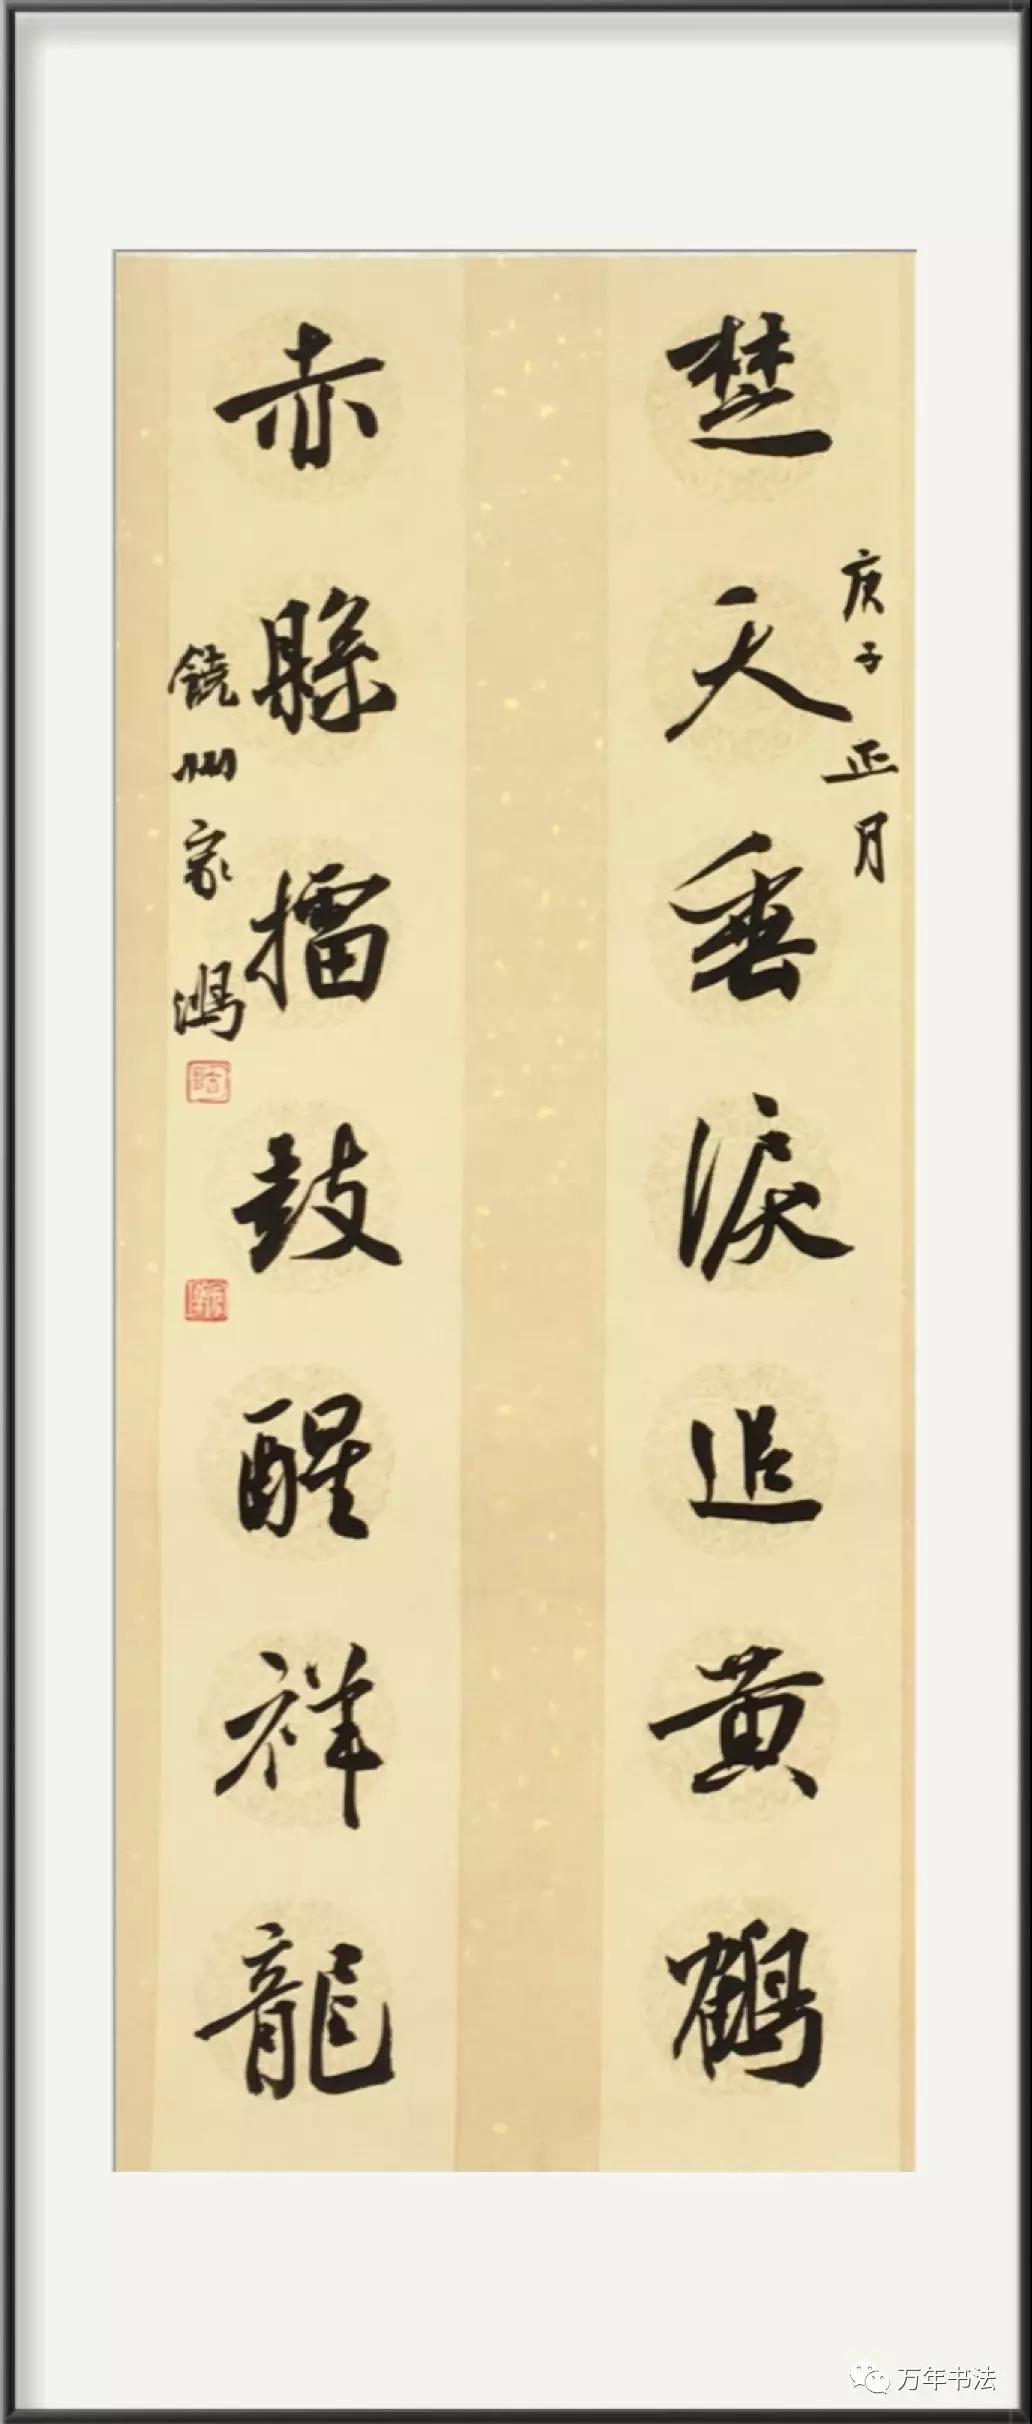 楚天垂淚追黄鶴
庚子正月
赤縣擂鼓醒祥龍
饒州家鴻
万年书法